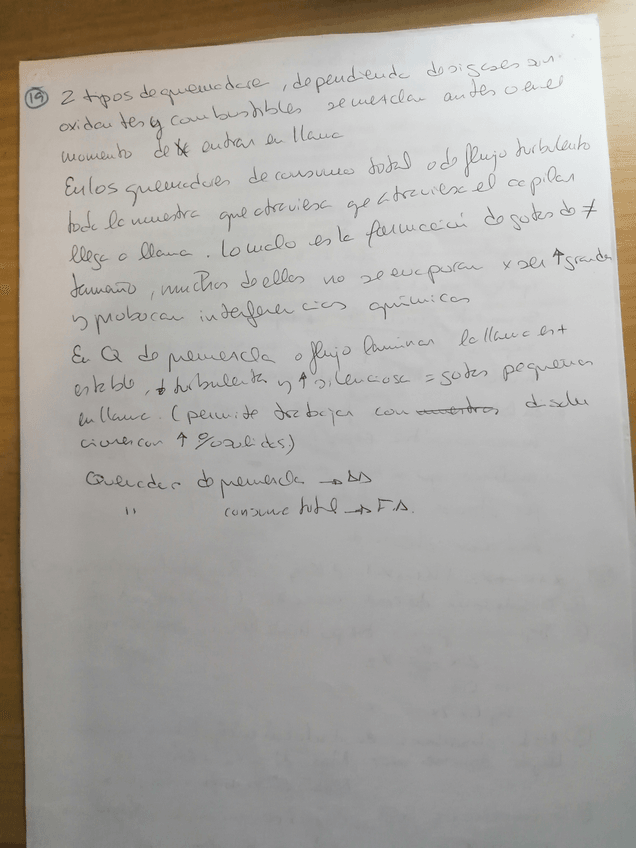 19 2 tipos de quemadores, dependiendo de si gases son
oxidantes y combustibles se mezclan antes o en el
momento de entrar en llama
En los quemadores de consumo total o de flujo turbulento
toda la muestra que atraviesa que atraviesa el capilar
llega a llama. Lo malo es la formación de gotas de ≠
tamaño, muchas de ellas no se evaporan x ser ↑ grandes
y provocan interferencias químicas
En Q de premezcla o flujo laminar la llama es +
estable, ↓ turbulenta y ↑ silenciosa = gotas pequeñas
en llama. (permite trabajar con muestras disolu
ciones con ↑ % sólidos)
Quemador de premezcla → AA
" consumo total → F.A.